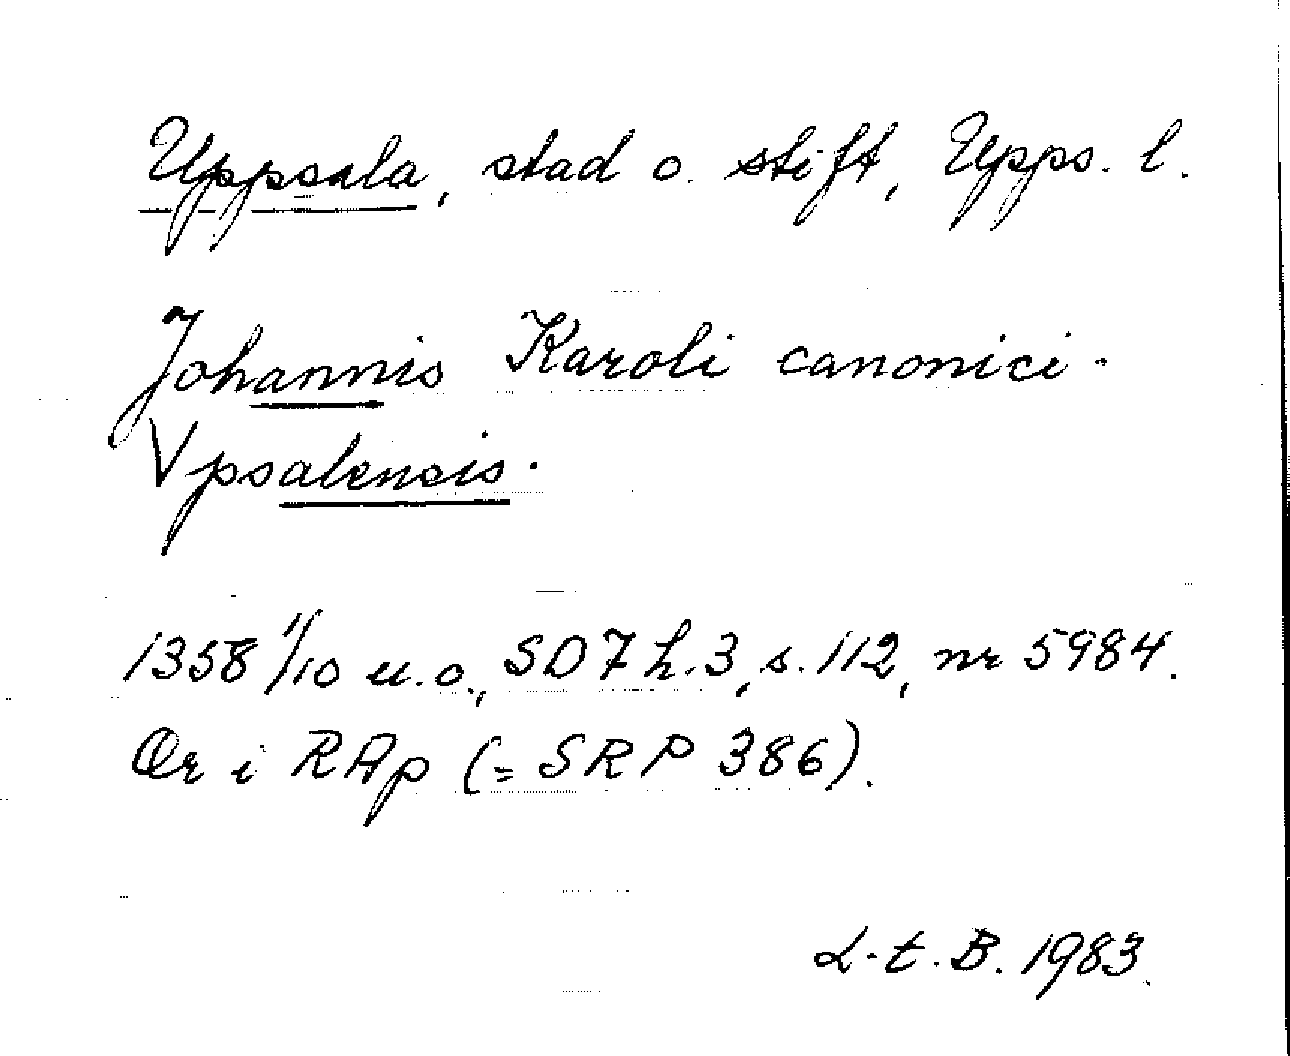 Uppsala, stad o. stift, Upps. l.
Johannis Karoli canonici.
Vpsalensis.
1358 1/10 u.o., SD 7 h.3, s.112, nr 5984.
Or i RAp (= SRP 386).
L.t.B. 1983.